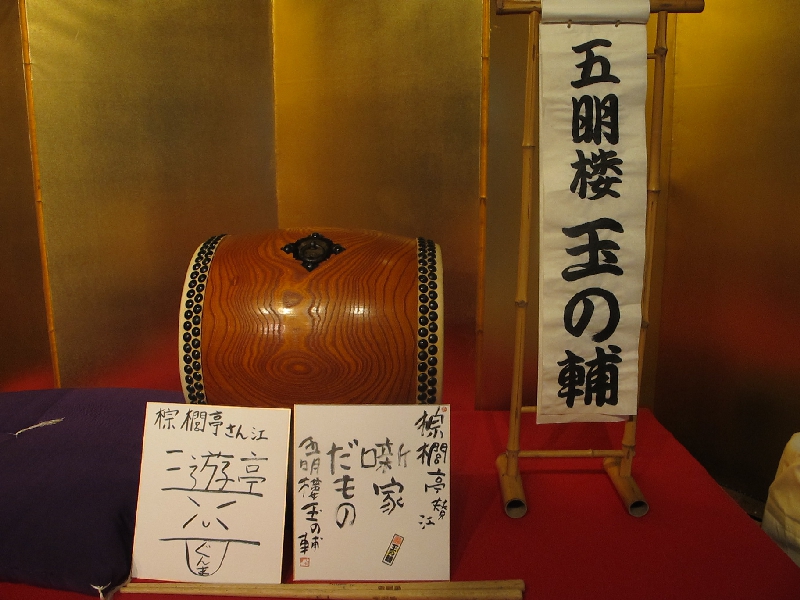 五明楼 玉の輔
棕櫚亭さん江
三遊亭
ぐんま
棕櫚亭賛江
噺家
だもの
五明樓玉の輔